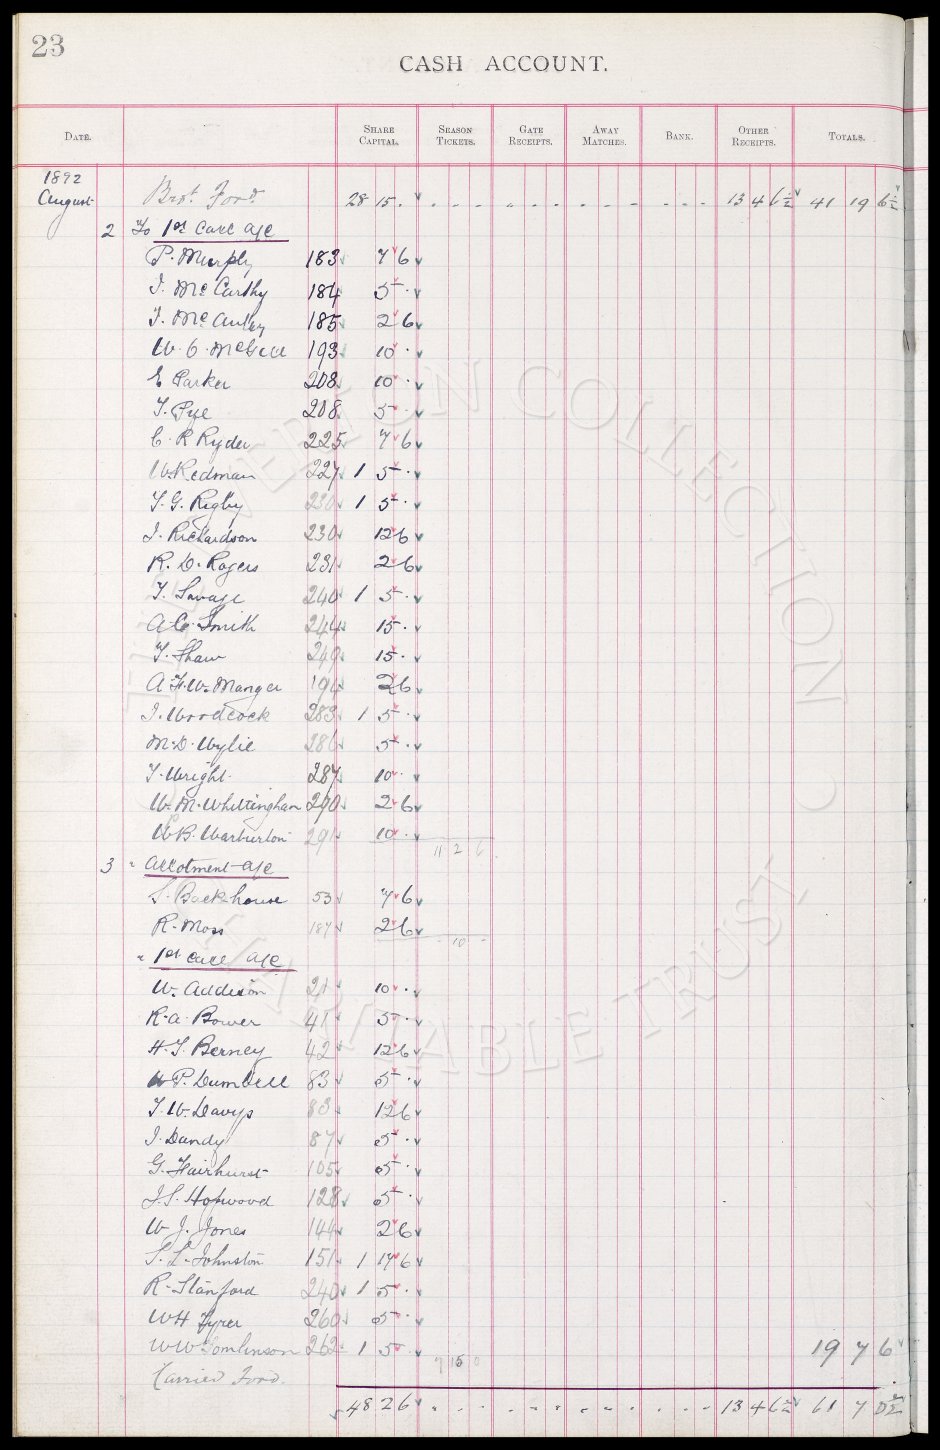 23
CASH ACCOUNT.
DATE. SHARE CAPITAL. SEASON TICKETS. GATE RECEIPTS. AWAY MATCHES. BANK. OTHER RECEIPTS. TOTALS.
1892
August Brot. Ford. 28 15 . 13 4 6½ 41 19 6½
2 To 1st Call a/c
P. Murphy 183 7 6
J. McCarthy 184 5 .
J. McAuley 185 2 6
W. C. 193 10 .
E Parker 208 10 .
T. Pye 208 5 .
C. R Ryder 225 7 6
W. Redman 227 1 5 .
T. G. Rigby 230 1 5 .
J. Richardson 230 12 6
R. D. Rogers 231 2 6
T. Savage 240 1 5 .
A. C. Smith 244 15 .
T. Shaw 249 15 .
A. F. W. Manger 194 2 6
J. Woodcock 283 1 5 .
M. D. Wylie 286 5 .
T. Wright 287 10 .
W. M. Whittingham 290 2 6
W B. Warburton 291 10 . 11 2 6
3 " Allotment a/c
S. Backhouse 53 7 6
R. Moss 187 2 6 10
" 1st Call a/c
W. Addison 21 10 .
R. A. Bower 41 5 .
H. T. Berney 42 12 6
H P. Dumbell 83 5 .
T. W. Davys 83 12 6
J. Dandy 87 5 .
G. Fairhurst 105 5 .
J. S. Hopwood 128 5 .
W. J. Jones 144 2 6
S. L. Johnston 151 1 17 6
R. Stanford 240 1 5 .
W H Tyrer 260 5 .
W W Tomlinson 262 1 5 . 7 15 0 19 7 6
Carried Ford.
48 2 6 13 4 6½ 61 7 0½
THE EVERTON COLLECTION CHARITABLE TRUST